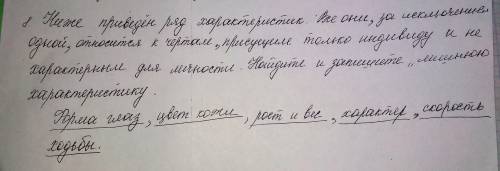 8 Ниже приведён ряд характеристик. Все они, за исключением
одной, относится к чертам, присущие только индивиду и не
характерным для личности. Найдите и запишите „лишнюю
характеристику.
Форма глаз, цвет кожи, рост и вес, характер, скорость
ходьбы.